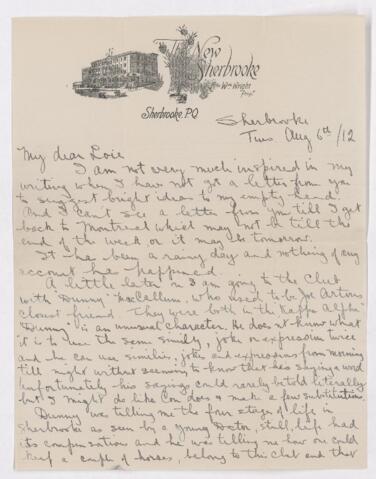 The New
Sherbrooke
Wm Wright
Prop.
Sherbrooke, P.Q.
Sherbrooke
Tues Aug 6th/12
My dear Lois
I am not very much inspired in my
writing when I have not got a letter from you
to suggest bright ideas to my empty head.
And I can't see a letter from you till I get
back to Montreal which may not be till the
end of the week or it may be tomorrow.
It has been a rainy day and nothing of any
account has happened.
A little later on I am going to the Club
with "Dunny" MacCallum, who used to be Joe
closest friend. They were both in the Kappa Alpha
"Dunny" is an unusual character. He does not know what
it is to use the same simily, joke or expression twice
and he can use similies, jokes and expressions from morning
till night without seeming to know that he's saying a word
Unfortunately his sayings could rarely be told literally
but I might do like Con does & make a few substitutions.
Dunny was telling me the four stages of life in
Sherbrooke as seen by a young Doctor, still life had
its compensations and he was telling me how one could
keep a couple of horses, belong to this club and that